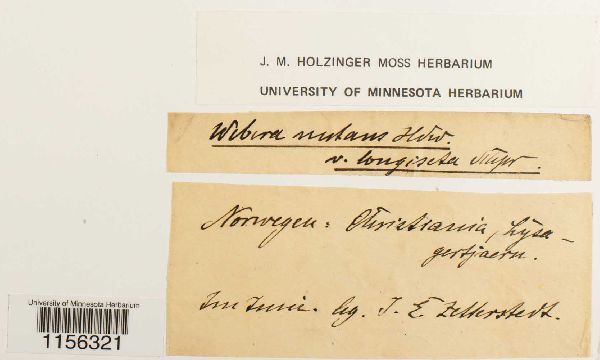 J. M. HOLZINGER MOSS HERBARIUM
UNIVERSITY OF MINNESOTA HERBARIUM
Webera nutans Hdw.
v. longiseta
Norwegen: Christiania, Lysa-
gertjaern.
Im Juni. leg. J. E. Zetterstedt.
University of Minnesota Herbarium
1156321